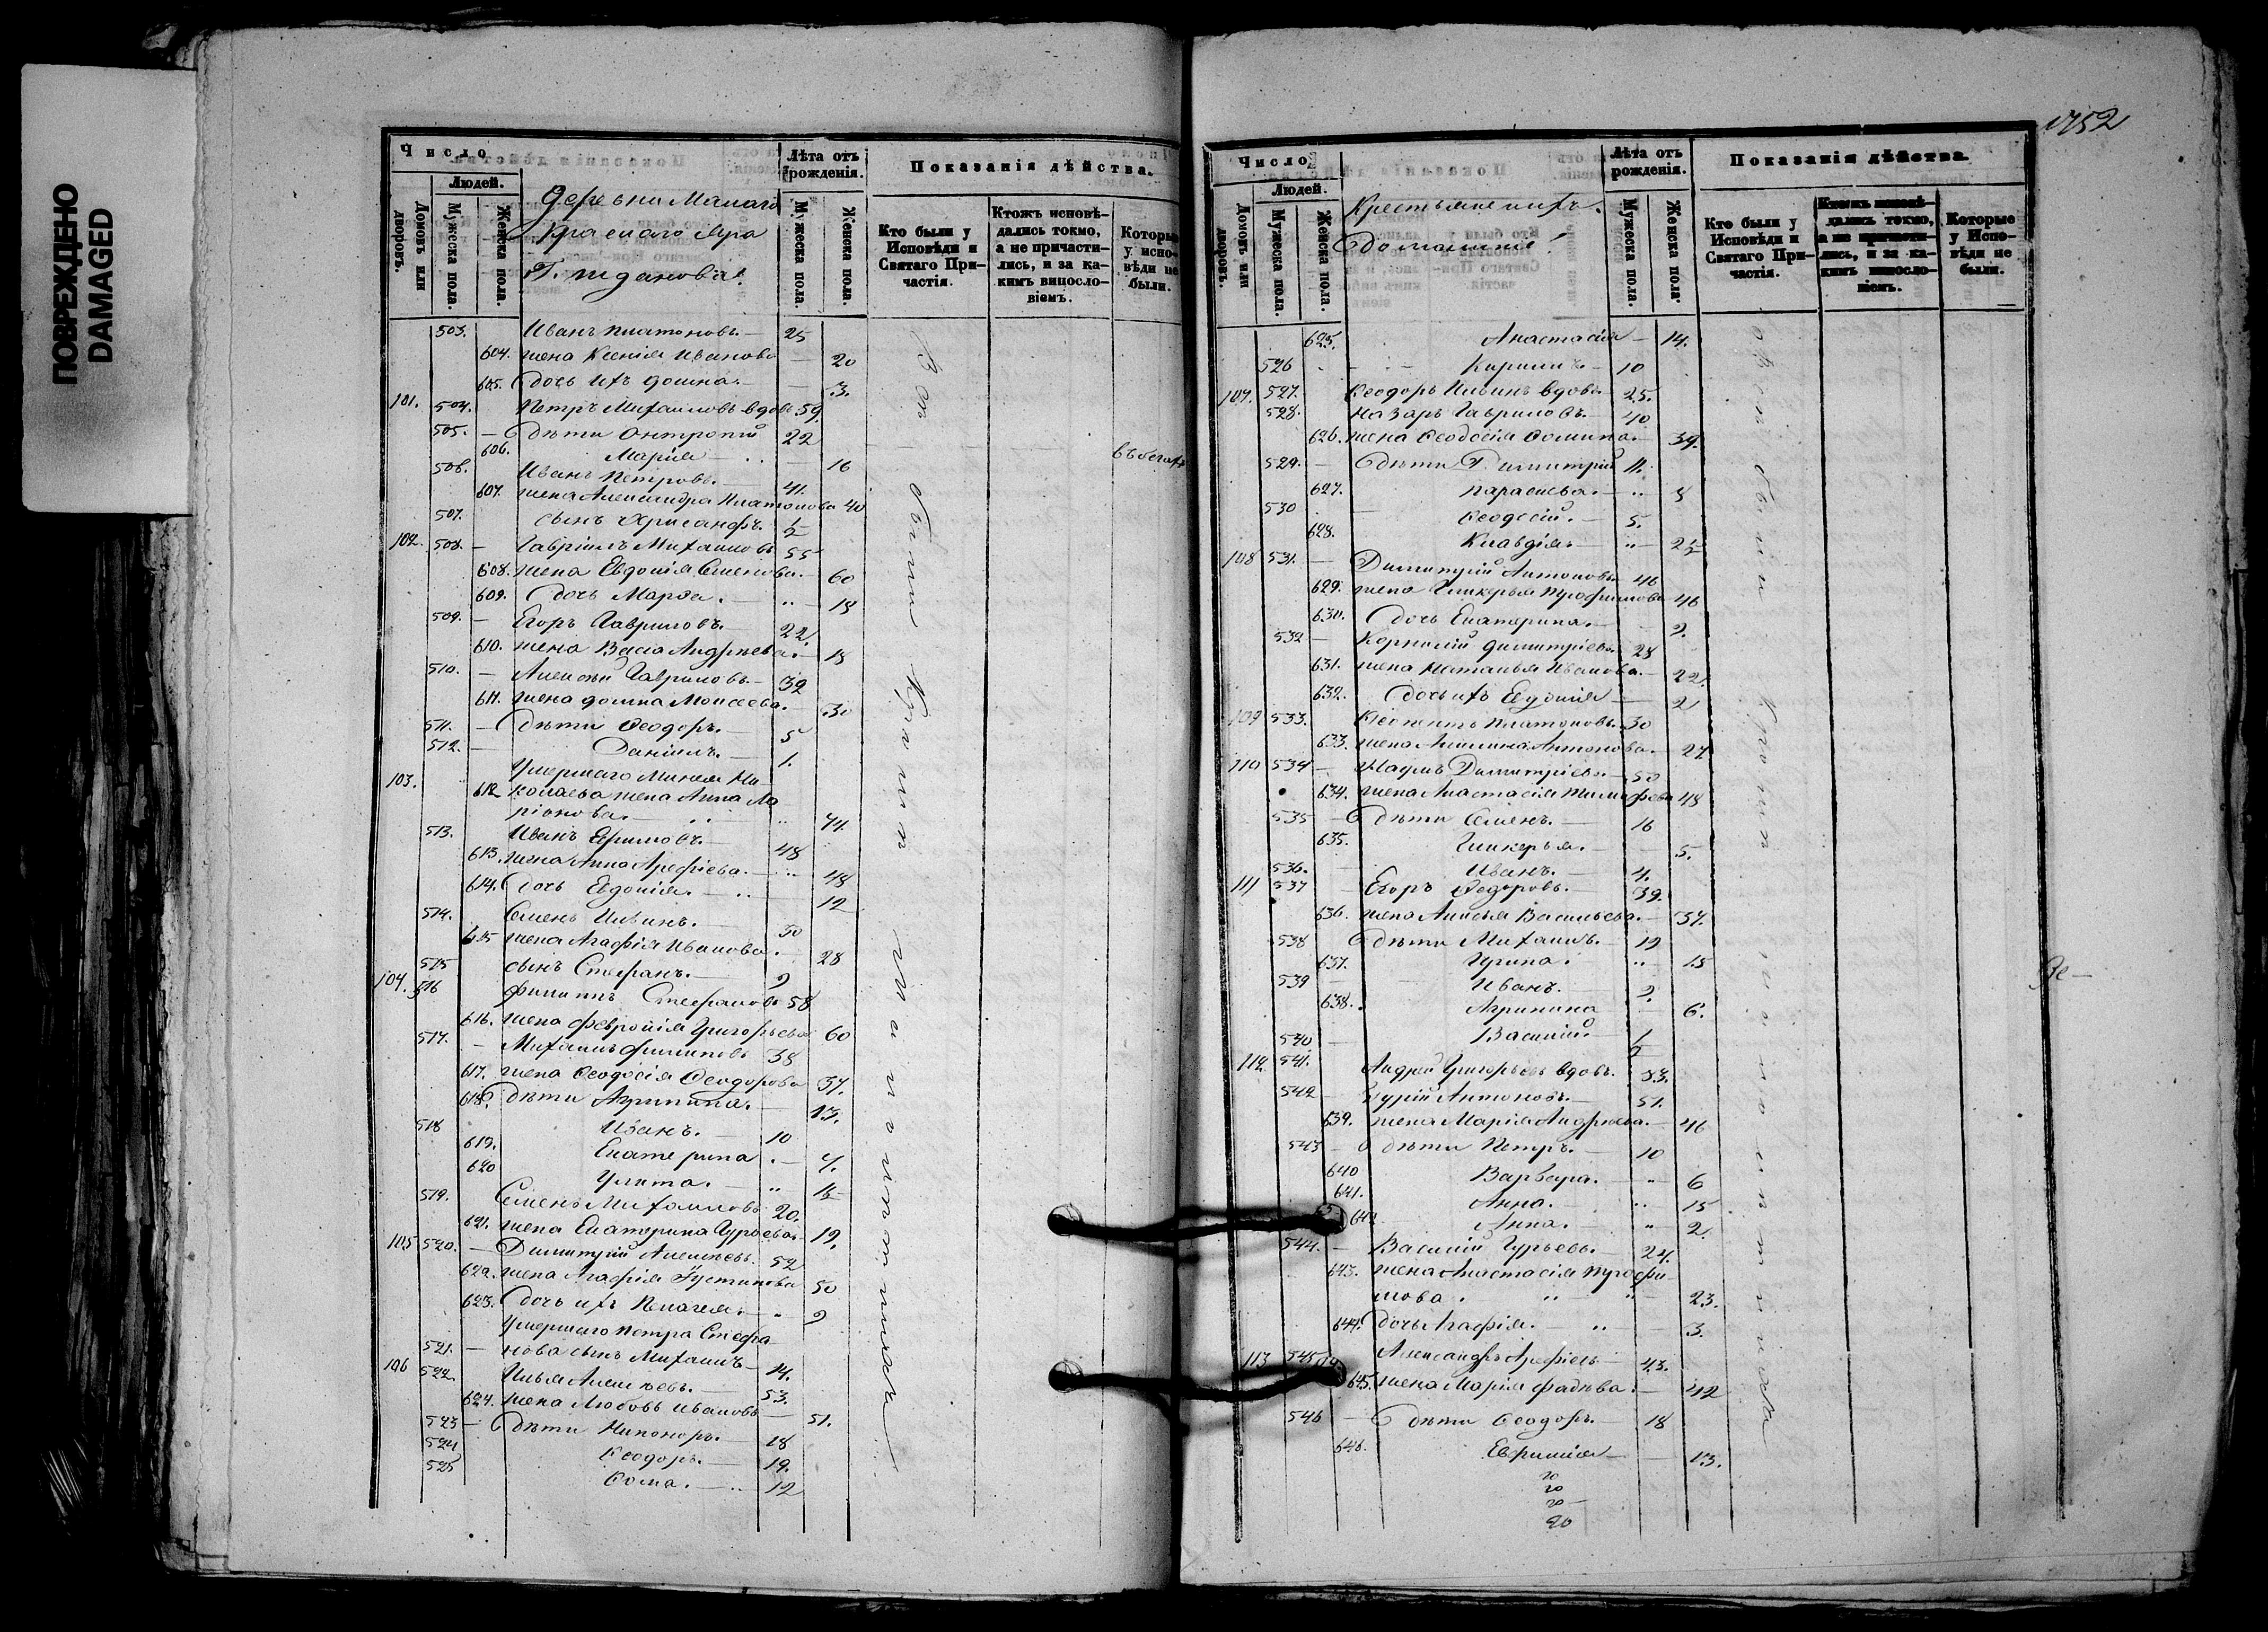 ПОВРЕЖДЕНО
DAMAGED
Число
Людей.
Домовъ или дворовъ.
Мужеска пола.
Женска пола.
Деревни Малаго
Краснаго Яра
Г. Жданова:
Лѣта отъ рожденія.
Мужеска пола.
Женска пола.
Показанія дѣйства.
Кто были у Исповѣди и Святаго Причастія.
Ктожъ исповѣдались токмо, а не причастились, и за какимъ винословіемъ.
Которые у исповѣди не были.
503. Иванъ Платоновъ. 25
604. жена Ксенія Иванова 20
605. дочь ихъ Домна. 3.
101. 504. Петръ Михаиловъ вдовъ 59.
505. дѣти Антропій 22
606. Марія 16
506. Иванъ Петровъ. 41.
607. жена Александра Платонова 40
507. сынъ Хрисанфъ. 1/2
102. 508. Гавріилъ Михаиловъ 55
608. жена Евдокія Семенова. 60
609. дочь Марѳа. 18
509. Егоръ Гавриловъ. 22
610. жена Васса Андреева. 18
510. Алексѣй Гавриловъ. 32
611. жена Домна Моисеева. 30
511. дѣти Ѳеодоръ. 5
512. Даніилъ. 1.
103. Умершаго Михея Ни-
612. колаева жена Анна Ла
ріонова. 74.
513. Иванъ Ефимовъ. 48
613. жена Анна Арефіева. 48
614. дочь Евдокія. 12
514. Семенъ Ильинъ. 30
615 жена Агафія Иванова. 28
515 сынъ Стефанъ. 2
104. 516 Филиппъ Стефановъ 58
616. жена Февронія Григорьева 60
517. Михаилъ Филиповъ 38
617. жена Ѳеодосія Ѳеодорова 37.
618. дѣти Агрипина. 13.
518 Иванъ. 10
619. Екатерина. 7.
620 Улита. 15
519. Семенъ Михаиловъ 20.
621. жена Екатерина Гурьева 19.
105 520. Димитрій Алексѣевъ. 52
622. жена Агафія Густинова 50
623. дочь ихъ Пелагея. 2
Умершаго Петра Стефа
521. нова сынъ Михаилъ 14.
106 522. Илья Алексѣевъ. 53.
624. жена Любовь Иванова 51.
523 дѣти Никоноръ. 18
524 Ѳеодоръ. 19.
525 Ѳома. 12
Всѣ были кромѣ
въ бегахъ
1752
Число
Людей.
Домовъ или дворовъ.
Мужеска пола.
Женска пола.
Крестьяне ихъ.
домашніе:
Лѣта отъ рожденія.
Мужеска пола.
Женска пола.
Показанія дѣйства.
Кто были у Исповѣди и Святаго Причастія.
Ктожъ исповѣдались токмо, а не причастились, и за какимъ винословіемъ.
Которые у Исповѣди не были.
625. Анастасія 14.
526 Кирилъ. 10
107. 527. Ѳеодоръ Ильинъ вдовъ 25.
528. Назаръ Гавриловъ. 40
626. жена Ѳеодосія Ѳомина. 39.
529. дѣти Димитрій 11.
627. Параскева. 8
530 Ѳеодосій. 5.
628. Клавдія 2 1/2
108 531. Димитрій Антоновъ 46
629. жена Гликерья Трофимова 46
630. дочь Екатерина. 9.
532 Корнилій Димитріевъ 28
631. жена Наталья Иванова. 22.
632. дочь ихъ Евдокія 2
109 533. Платоновъ. 30
633. жена Акилина Антонова. 27
110 534 Димитріевъ. 50
634. жена Анастасія Тимофеева 48
535 дѣти Семенъ. 16
635. Гликерья. 5.
536. Иванъ. 4.
111 537 Егоръ Ѳедоровъ. 39.
636. жена Анисья Васильева. 37.
538 дѣти Михаилъ. 19
637. Ирина. 15
539 Иванъ. 9.
638. Агрипина 6.
540 Василій. 1/2
112 541. Андрей Григорьевъ вдовъ. 83.
542 Гурій Антоновъ. 51.
639. жена Марія Андреева. 46
543 дѣти Петръ. 10
640 Варвара. 6
641. Анна. 15
642 Анна. 2.
544. Василій Гурьевъ. 24.
643. жена Анастасія Трофи-
мова. 23.
644. дочь Агафія. 3.
113 545 Александръ Арефіевъ 43.
645. жена Марія Фадѣева. 42
546 дѣти Ѳеодоръ. 18
646. Евфимія 13.
Всѣ были кромѣ